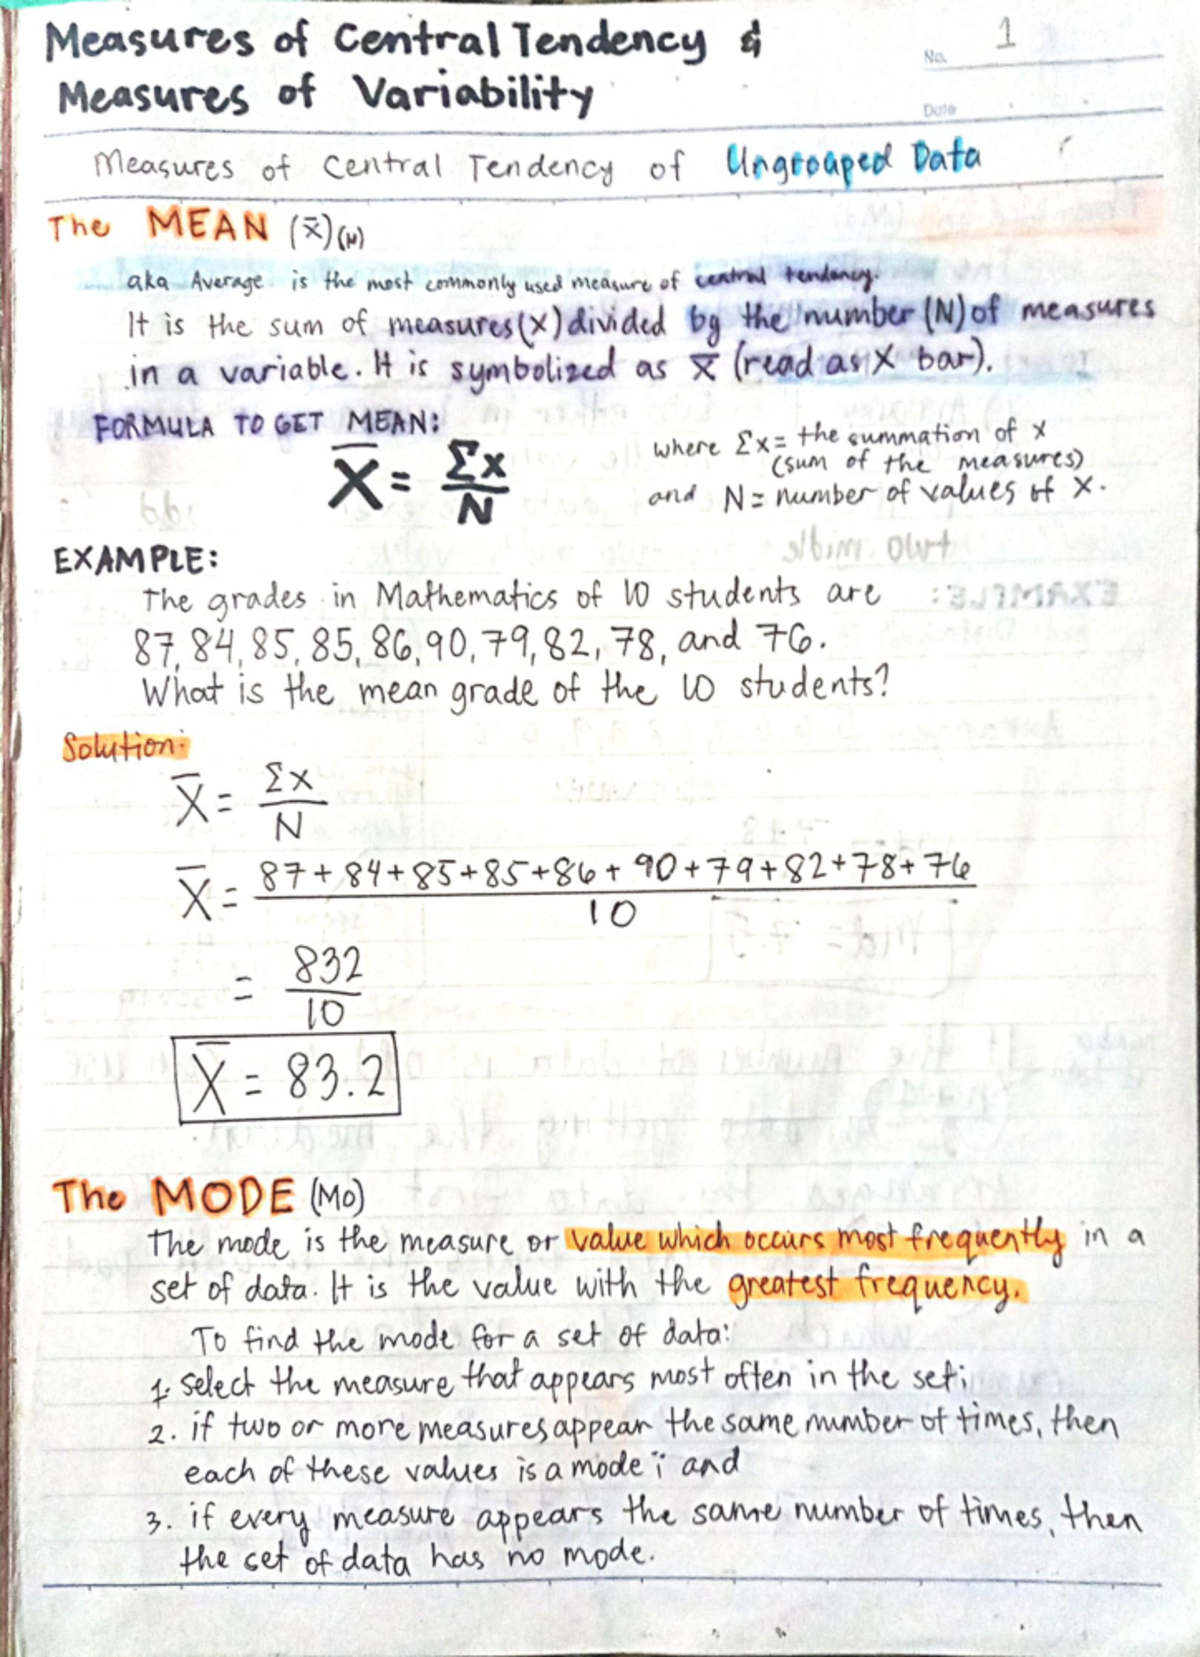 Measures of Central Tendency &
Measures of Variability
No. 1
Date
Measures of Central Tendency of Ungrouped Data
The MEAN (x̄)(M)
aka Average is the most commonly used measure of central tendency.
It is the sum of measures (x) divided by the number (N) of measures
in a variable. It is symbolized as x̄ (read as X bar).
FORMULA TO GET MEAN:
X̄ = Σx/N
where Σx = the summation of x
(sum of the measures)
and N = number of values of x.
EXAMPLE:
The grades in Mathematics of 10 students are
87, 84, 85, 85, 86, 90, 79, 82, 78, and 76.
What is the mean grade of the 10 students?
Solution:
X̄ = Σx/N
X̄ = 87+84+85+85+86+90+79+82+78+76
10
= 832/10
X̄ = 83.2
The MODE (Mo)
The mode is the measure or value which occurs most frequently in a
set of data. It is the value with the greatest frequency.
To find the mode for a set of data:
1. select the measure that appears most often in the set;
2. if two or more measures appear the same number of times, then
each of these values is a mode; and
3. if every measure appears the same number of times, then
the set of data has no mode.